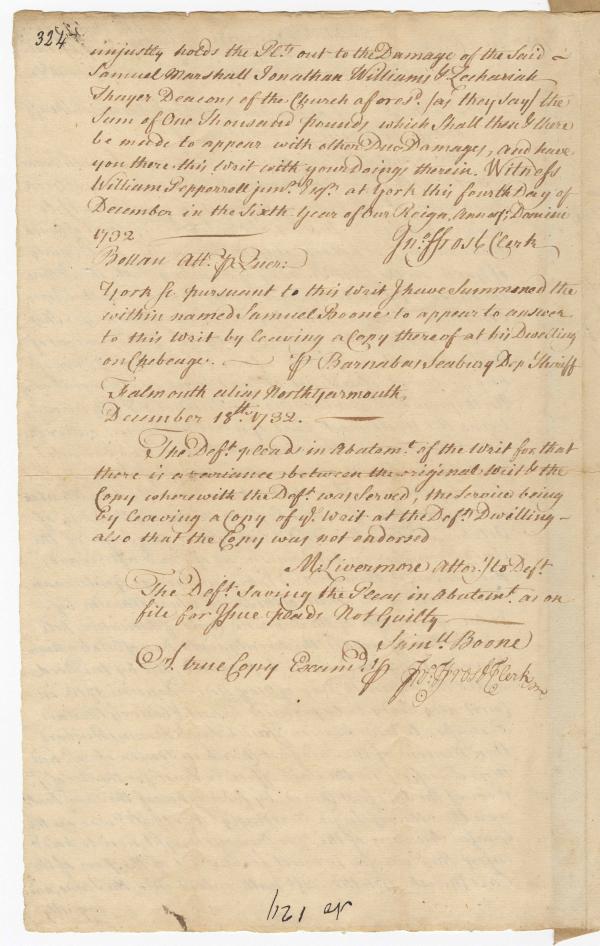 324
unjustly holds the Plts. out to the Damage of the Said
Samuel Marshall Jonathan Williams & Zechariah
Thayer Deacons of the Church afores.d (as they say) the
Sum of One Thousand pounds which Shall then & there
be made to appear with other Due Damages, and have
you there this Writ with your Doings therein. Witness
William Pepperrell jun.r Esq.r at York this fourth Day of
December in the Sixth Year of Our Reign, Annoq; Domini
1732 Jn.o Frost Clerk
Bollan Att.o ⅌ Quer:
York Sc. pursuant to this Writ I have Summoned the
within named Samuel Boone to appear to answer
to this Writ by leaving a Copy thereof at his Dwelling
on Chebeage. ⅌ Barnabas Seabury Dep.t Sheriff
Falmouth alias North Yarmouth,
December 18th. 1732.
The Deft. pleads in Abatemt. of the Writ for that
there is a variance between the original Writ & the
Copy wherewith the Deft. was Served, the Service being
by leaving a Copy of ye. Writ at the Defts. Dwelling
also that the Copy was not endorsed
M: Livermore Attor.y to Deft.
The Deft. saving the Pleas in Abatemt. as on
file for Issue pleads Not Guilty
Sam.ll Boone
A true Copy Examd. ⅌ Jno. Frost Clerk